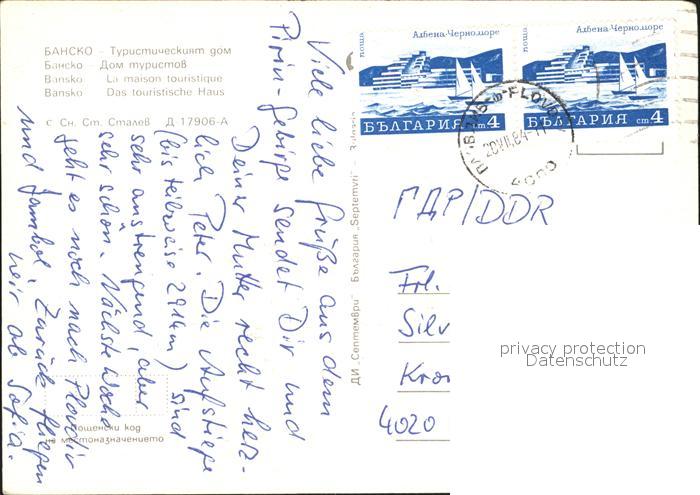 БАНСКО – Туристическият дом
Банско Дом туристов
Bansko La maison touristique
Bansko Das touristische Haus
с Сн. Ст. Сталев Д 17906-А
Viele liebe Grüße aus dem
Pirin-Gebirge sendet Dir und
Deiner Mutter recht herz-
lich Peter. Die Aufstiege
(bis teilweise 2914m) sind
sehr anstrengend, aber
sehr schön. Nächste Woche
geht es noch nach Plovdiv
und Jambol. Zurück fliegen
wir ab Sofia.
Пощенски код
на местоназначението
ДИ „Септември" България „Septemvri"
поща Албена-Черноморе
БЪЛГАРИЯ cm 4
поща Албена-Черноморе
БЪЛГАРИЯ cm 4
20VII.84
ГДР/DDR
Frl.
Silv
Kro
4020
privacy protection
Datenschutz